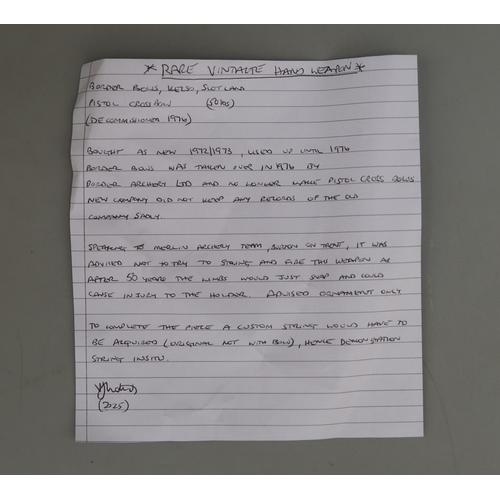 * RARE VINTAGTE HAND WEAPON *
BORDER BOWS, KELSO, SCOTLAND
PISTOL CROSSBOW (50lbs)
(DECOMMISIONED 1976)
BOUGHT AS NEW 1972/1973, USED UP UNTIL 1976
BORDER BOWS WAS TAKEN OVER IN 1976 BY
BORDER ARCHERY LTD AND NO LONGER MAKE PISTOL CROSS BOWS
NEW COMPANY DID NOT KEEP ANY RECORDS OF THE OLD
COMPANY SADLY.
SPEAKING TO MERLIN ARCHERY TEAM, BURTON ON TRENT, IT WAS
ADVISED NOT TO TRY TO STRING AND FIRE THIS WEAPON AS
AFTER 50 YEARS THE LIMBS WOULD JUST SNAP AND COULD
CAUSE INJURY TO THE HOLDER. ADVISED ORNAMENT ONLY
TO COMPLETE THE PIECE A CUSTOM STRING WOULD HAVE TO
BE ACQUIRED (ORIGINAL NOT WITH BOW), HENCE DEMONSTATION
STRING INSITU.
(2025)